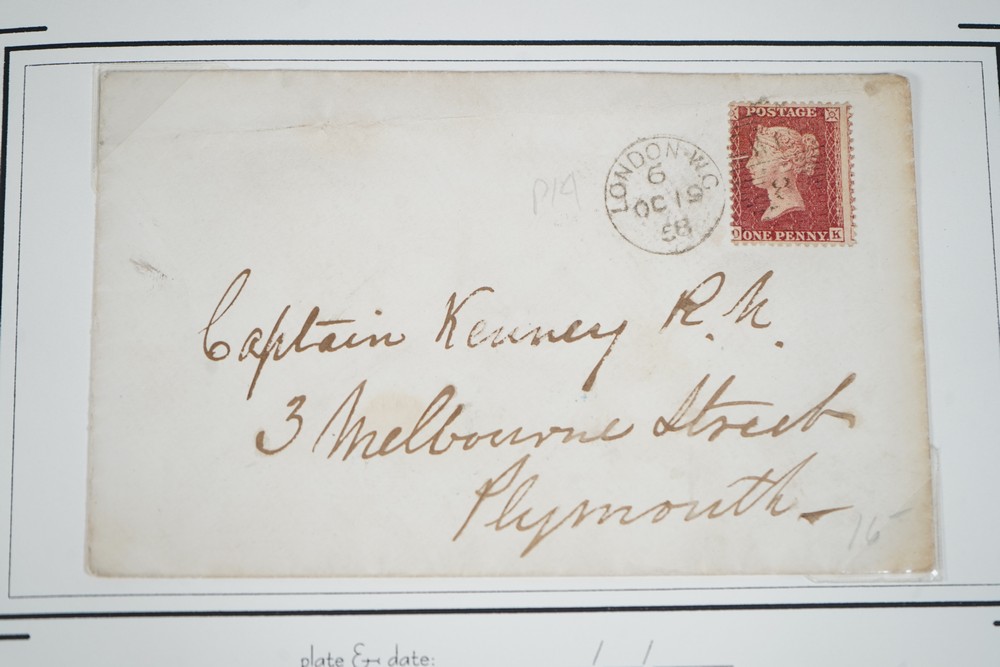 POSTAGE
ONE PENNY K
LONDON-W.C
9
OC 19
58
P19
Captain Kenney R.N.
3 Melbourne Street
Plymouth
16-
plate & date: / /